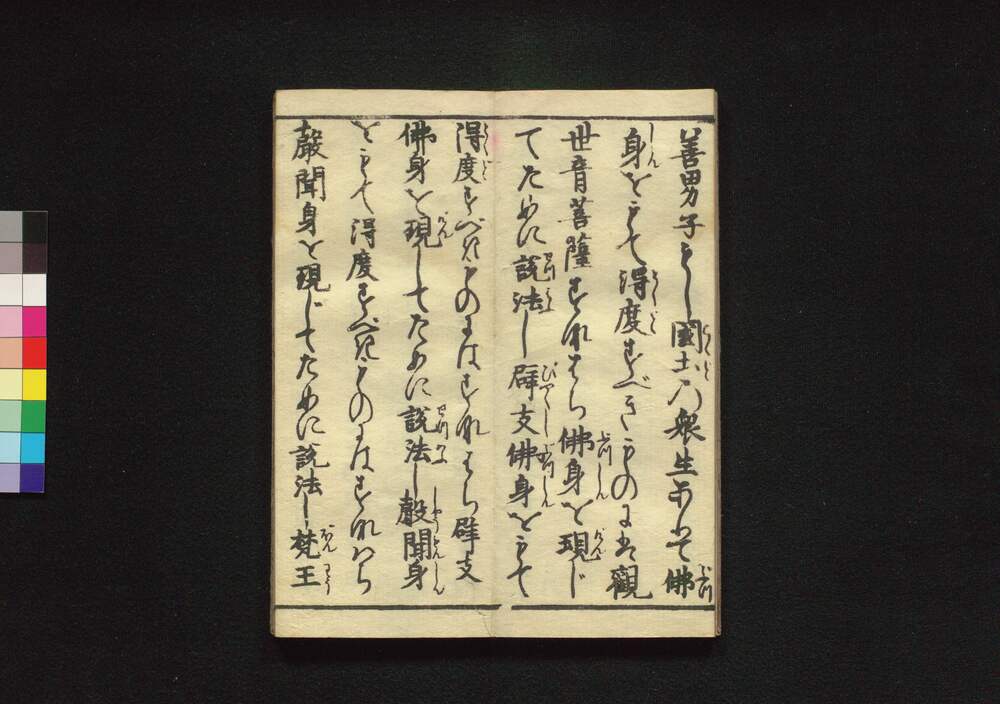 善男子もし國土の衆生ありて佛
身をもて得度すべきものには觀
世音菩薩すなはち佛身を現じ
てために説法し辟支佛身をもて
得度すべきものにはすなはち辟支
佛身を現してために説法し聲聞身
をもて得度すべきものにはすなはち
聲聞身を現じてために説法し梵王